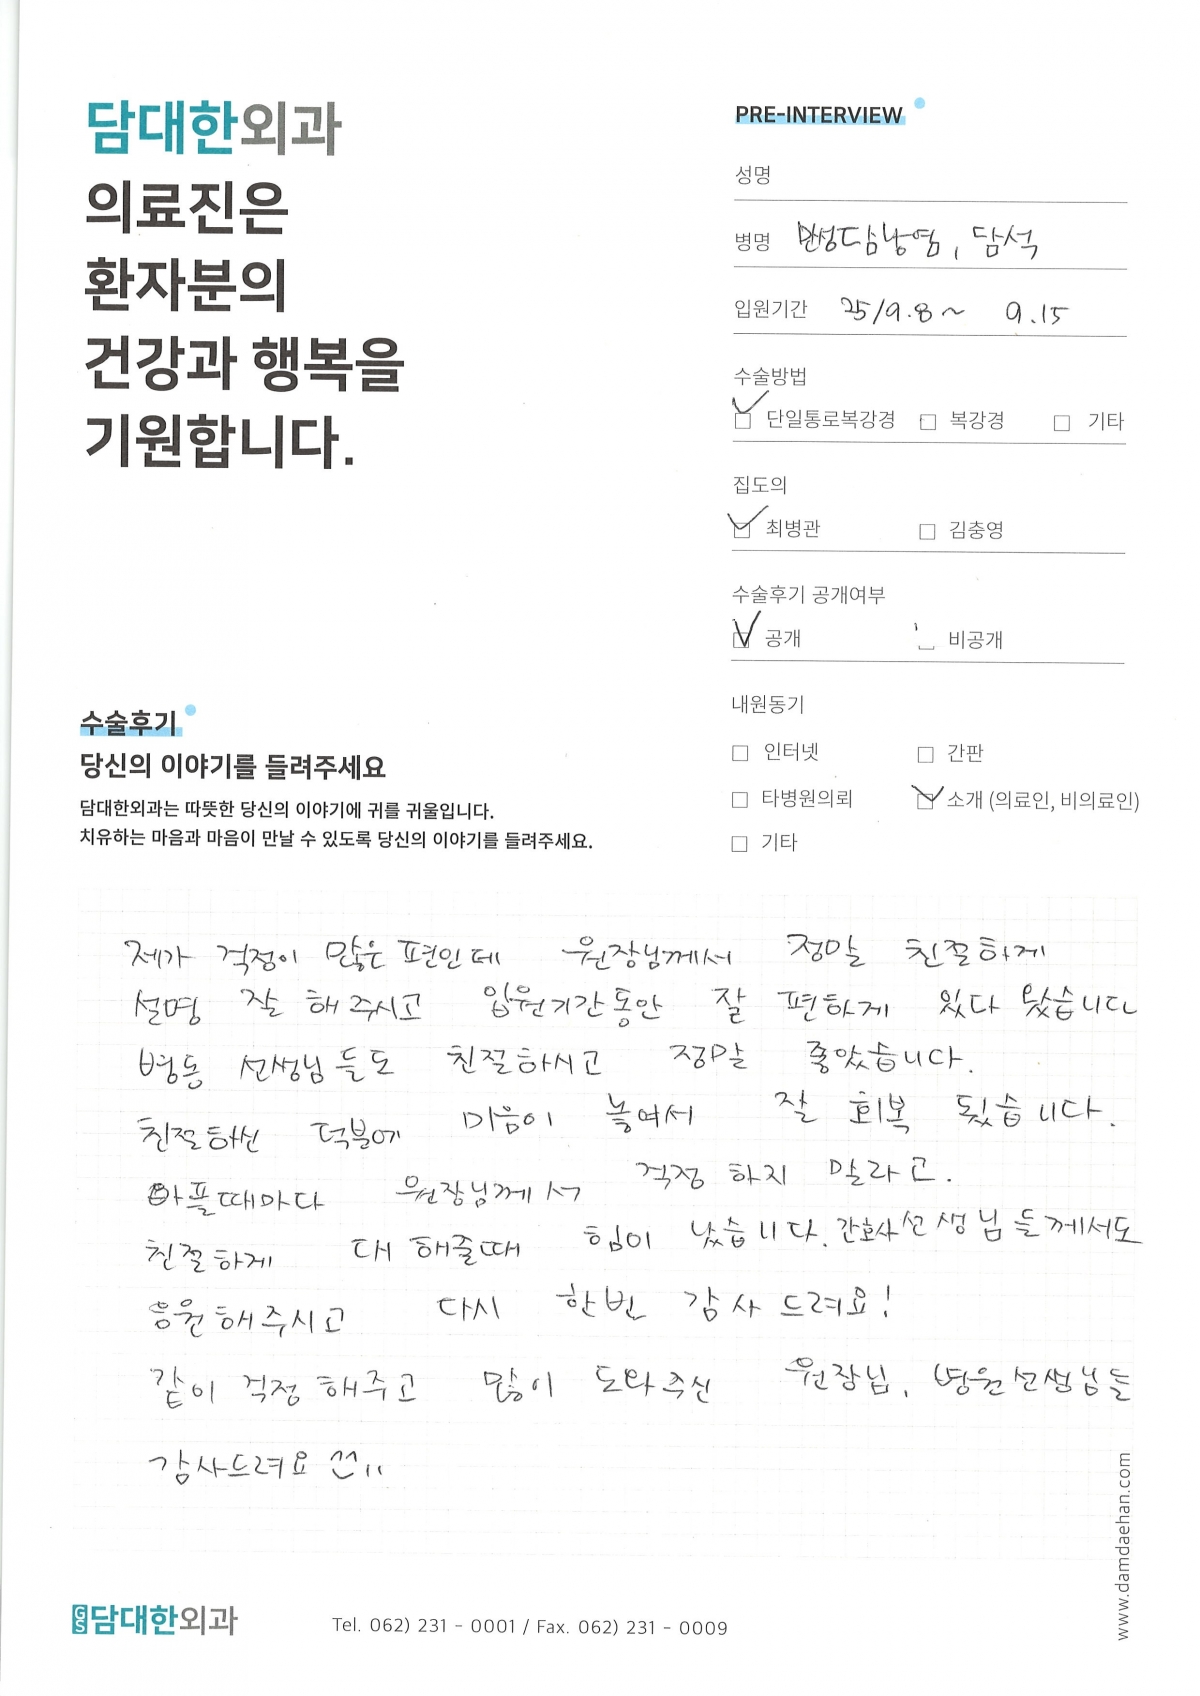 담대한외과
의료진은
환자분의
건강과 행복을
기원합니다.
PRE-INTERVIEW
성명
병명 만성담낭염, 담석
입원기간 25/9.8 ~ 9.15
수술방법
단일통로복강경 복강경 기타
집도의
최병관 김충영
수술후기 공개여부
공개 비공개
내원동기
인터넷 간판
타병원의뢰 소개 (의료인, 비의료인)
기타
수술후기
당신의 이야기를 들려주세요
담대한외과는 따뜻한 당신의 이야기에 귀를 귀울입니다.
치유하는 마음과 마음이 만날 수 있도록 당신의 이야기를 들려주세요.
제가 걱정이 많은 편인데 원장님께서 정말 친절하게
설명 잘 해주시고 입원기간동안 잘 편하게 있다 왔습니다
병동 선생님들도 친절하시고 정말 좋았습니다.
친절하신 덕분에 마음이 놓여서 잘 회복 됬습니다.
아플때마다 원장님께서 걱정 하지 말라고.
친절하게 대해줄때 힘이 났습니다. 간호사선생님들께서도
응원해주시고 다시 한번 감사 드려요!
같이 걱정해주고 많이 도와주신 원장님, 병원선생님들
감사드려요 ^^
GS 담대한외과
Tel. 062) 231 - 0001 / Fax. 062) 231 - 0009
www.damdaehan.com